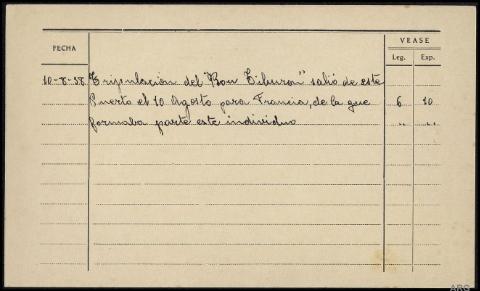 FECHA
VEASE
Leg. Exp.
10-8-38 Tripulación del "Bou Tiburon" salió de este
Puerto el 10 Agosto para Francia, de la que 6 10
formaba parte este individuo " "
ARG